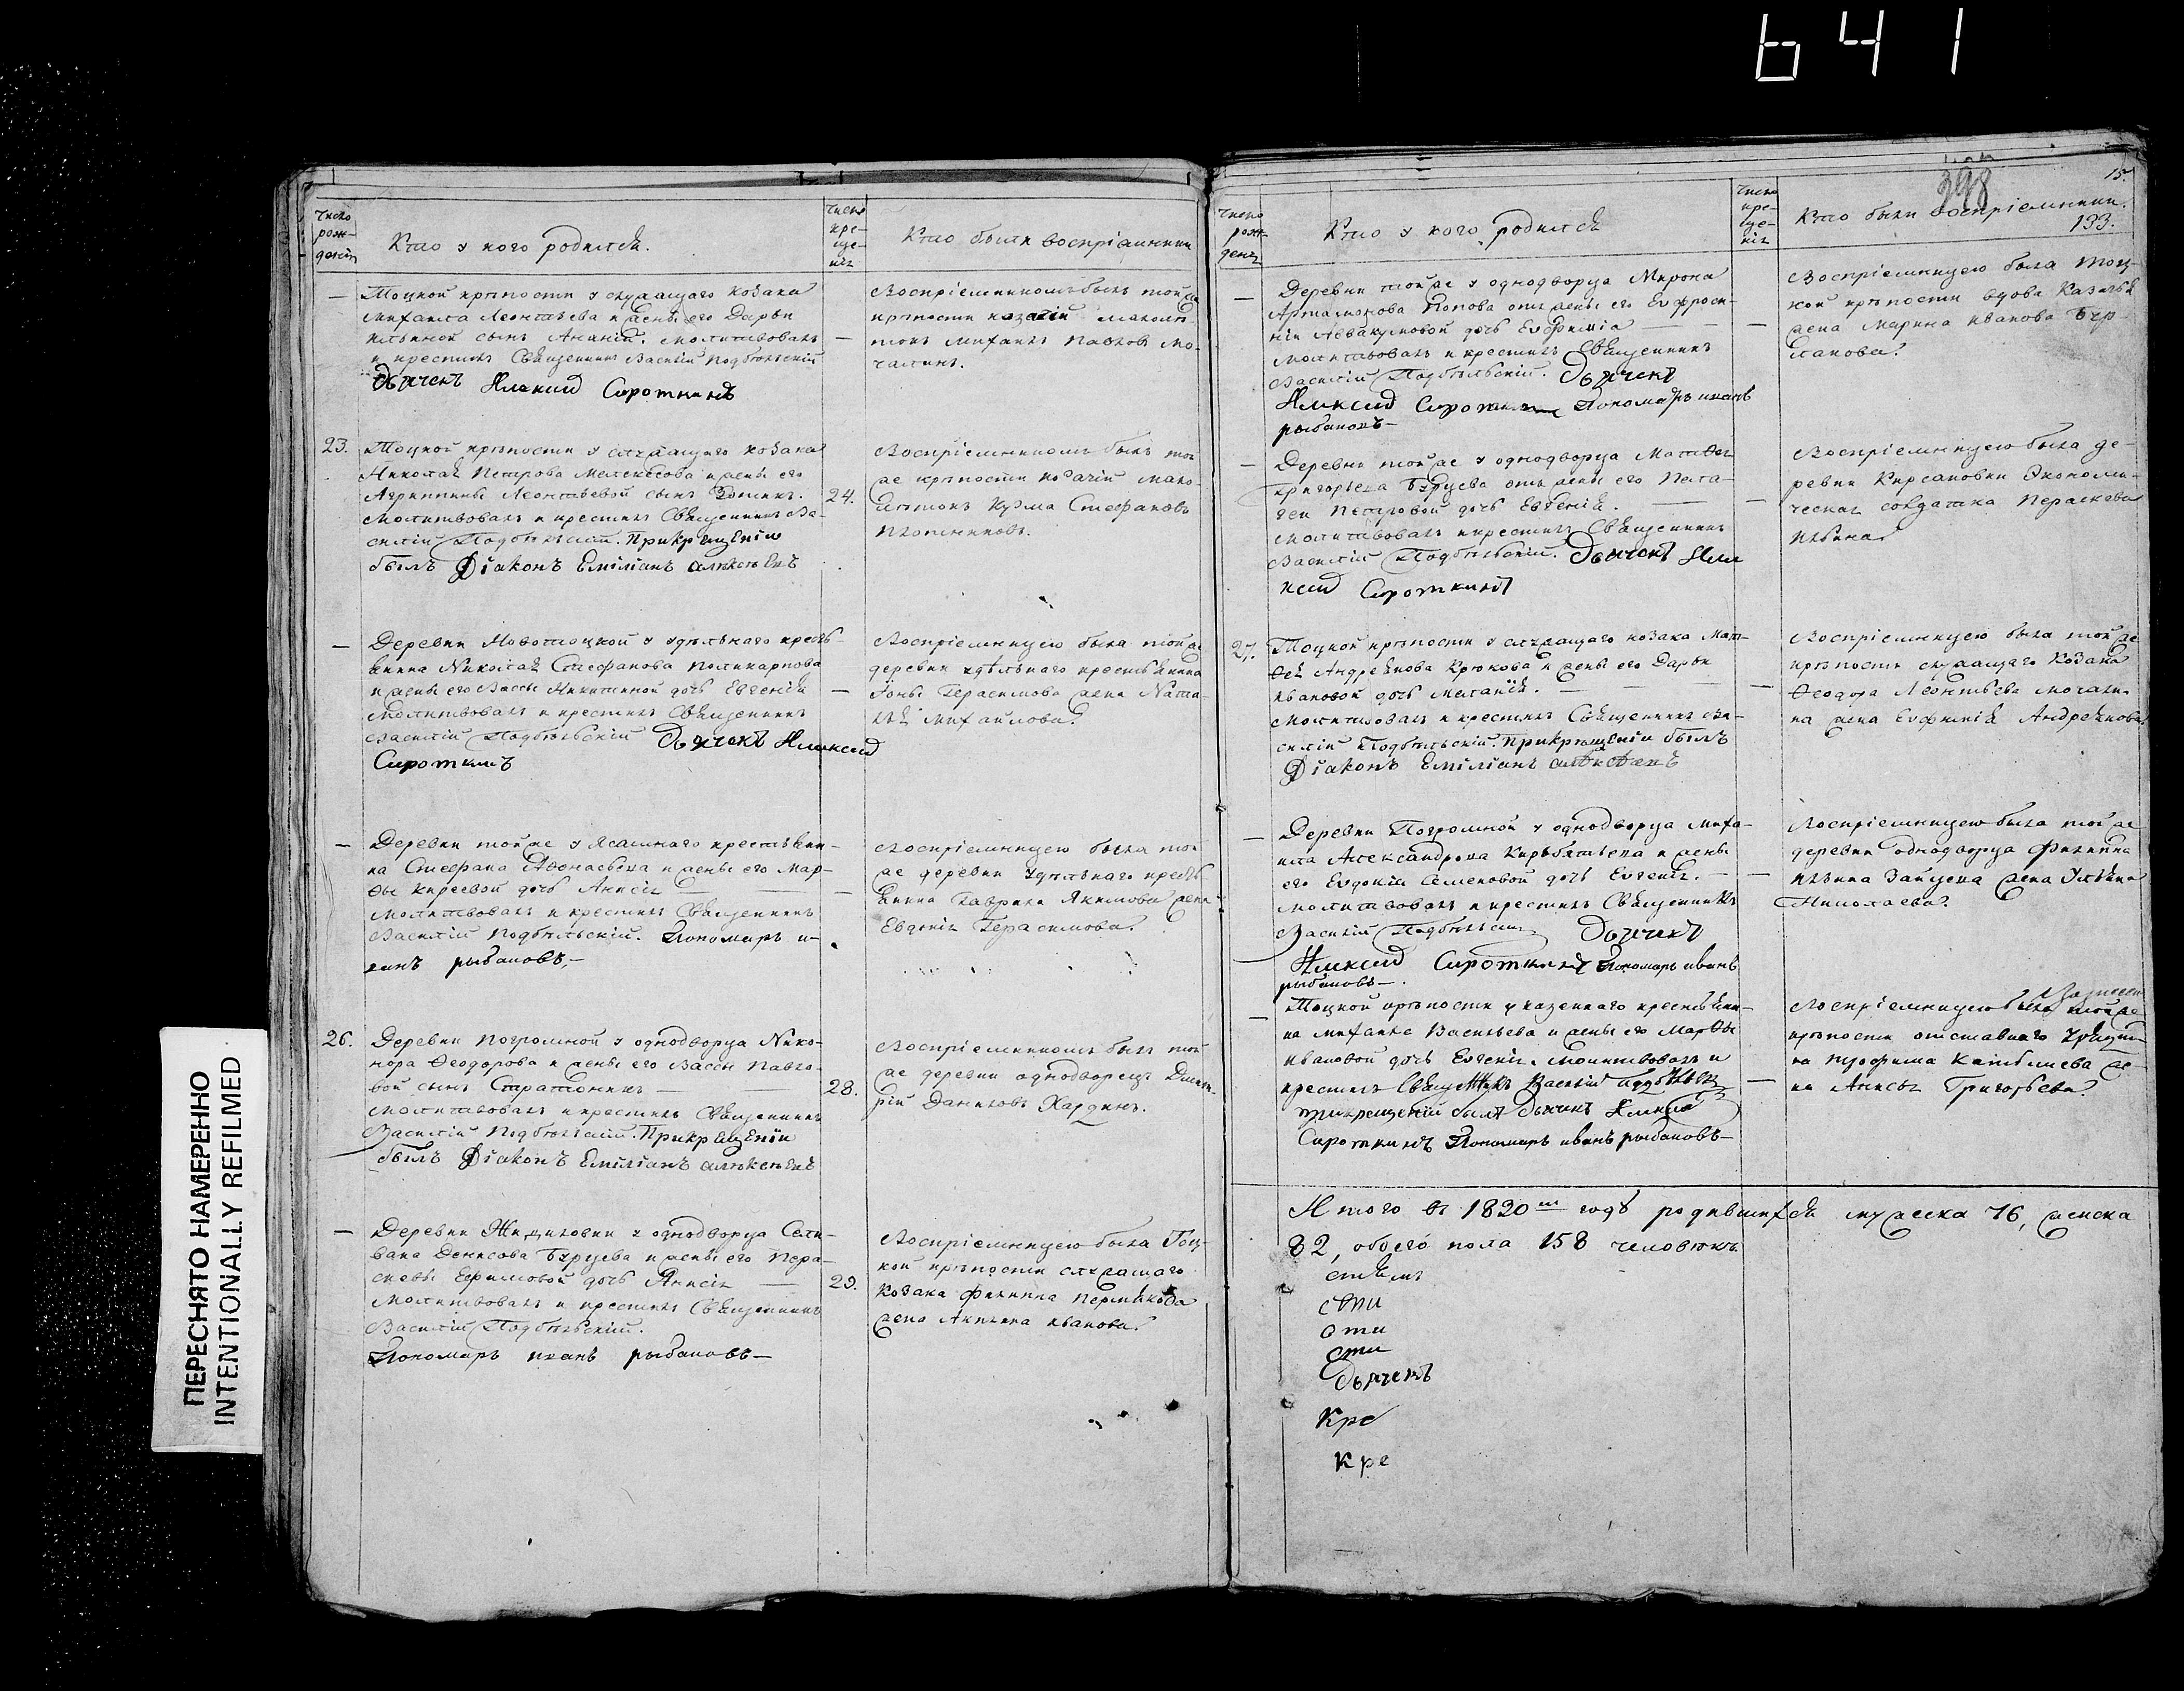 641
398
15.
133.
Число рож-
денія
Кто у кого родился.
Число кре-
ще-
нія
Кто были воспріемники
— Тоцкой крѣпости у служащаго козака
Михаила Леонтьева и жены его Дарьи
Ильиной сынъ Ананій. молитвовалъ
и крестилъ Священникъ Василій Подбѣльскій
Дьячекъ Алексий Сироткинъ
Воспріемникомъ былъ той же
крѣпости казачій малолѣ-
токъ Михаилъ Павловъ Мо-
чалинъ.
23. Тоцкой крѣпости у служащаго козака
Николая Петрова Мелекесова и жены его
Агрипины Леонтьевой сынъ
молитвовалъ и крестилъ Священникъ Ва-
силій Подбѣльскій. Прикрещеніи
былъ Діаконъ Емiлiанъ Алѣксѣевъ
24.
Воспріемникомъ былъ той
же крѣпости козачій мало-
лѣтокъ Кузма Стефановъ
Плотниковъ.
— Деревни Новотоцкой у удѣльнаго кресть-
янина Николая Стефанова Поликарпова
и жены его Вассы Никитиной дочь Евгенія
молитвовалъ и крестилъ Священникъ
Василій Подбѣльскій Дьячекъ Алексий
Сироткинъ
Воспріемницею была той же
деревни удѣльнаго крестьянина
Іоны Герасимова жена Ната-
лья Михайлова.
— Деревни той же у Ясашнаго крестьяни-
на Стефана Афонасьева и жены его Мар-
ѳы Киреевой дочь Анисія
молитвовалъ и крестилъ Священникъ
Василій Подбѣльскій. Пономарь и-
ванъ рыбаковъ.—
Воспріемницею была той
же деревни удѣльнаго кресть-
янина Гаврила Якимова жена
Евдокія Герасимова.
26. Деревни Погромной у однодворца Нико-
нора Ѳеодорова и жены его Вассы Павло-
вой сынъ Стратоникъ
молитвовалъ и крестилъ Священникъ
Василій Подбѣльскій. Прикрещеніи
былъ Діаконъ Емiлiанъ алѣксѣевъ
28.
Воспріемникомъ былъ той
же деревни однодворецъ Дмит-
рій Даниловъ Хардинъ.
— Деревни Жидиловки у однодворца Сели-
вана Денисова Бурцева и жены его Пера-
скевы Ефимовой дочь Анисія
молитвовалъ и крестилъ Священникъ
Василій Подбѣльскій.
Пономарь иванъ рыбаковъ—
29.
Воспріемницею была Тоц-
кой крѣпости служащаго
козака Филиппа Пермякова
жена Акилина Иванова.
Число рож-
денія
Кто у кого родился
Число кре-
ще-
нія
Кто были воспріемники.
— Деревни той же у однодворца Мирона
Артамонова Попова отъ жены его Евфроси-
ніи Аввакумовой дочь Евфимія
молитвовалъ и крестилъ Священникъ
Василій Подбѣльскій. Дьячекъ
Алексий Сироткин Пономарь иванъ
рыбаковъ—
Воспріемницею была тоц-
кой крѣпости вдова Казачья
жена Марина Иванова
— Деревни той же у однодворца Матѳея
Григорьева Бурцева отъ жены его Пела-
геи Петровой дочь Евгенія.
молитвовалъ и крестилъ Священникъ
Василій Подбѣльскій. Дьячекъ Але
ксий Сироткинъ
Воспріемницею была де-
ревни Кирсановки Экономи-
ческая солдатка Параскева
Ильина
27. Тоцкой крѣпости у служащаго козака Мат-
ѳея Андреянова Крюкова и жены его Дарьи
Ивановой дочь Меланія.
молитвовалъ и крестилъ Священникъ Ва-
силій Подбѣльскій. Прикрещеніи былъ
Діаконъ Емiлiанъ алѣксѣевъ
Воспріемницею была той же
крѣпости служащаго Козака
Ѳеодора Леонтьева Мочали-
на жена Евфимія Андреянова
— Деревни Погромной у однодворца Миха-
ила Александрова и жены
его Евдокіи Семеновой дочь Евгенія.
молитвовалъ и крестилъ Священникъ
Василій Подбѣльскій Дьячекъ
Алексий Сироткинъ Пономарь иванъ
рыбаковъ—.
Воспріемницею была той же
деревни однодворца Филиппа
Ильина Зайцева жена Ульяна
Николаева.
— Тоцкой крѣпости у казеннаго крестьяни-
на Михаила Васильева и жены его Марѳы
Ивановой дочь Евгенія. молитвовалъ и
крестилъ Священникъ Василій Подбѣльскій
прикрещеніи былъ дьячекъ Алексий
Сироткинъ Пономарь иванъ рыбаковъ—
Воспріемницею была той же
крѣпости отставнаго
на Трофима же-
на Анисья Григорьева.
Итого въ 1820м году родившихся мужеска 76, женска
82, обоего пола 158 человѣкъ.
Дьячекъ
Кре
Кре
ПЕРЕСНЯТО НАМЕРЕННО
INTENTIONALLY REFILMED